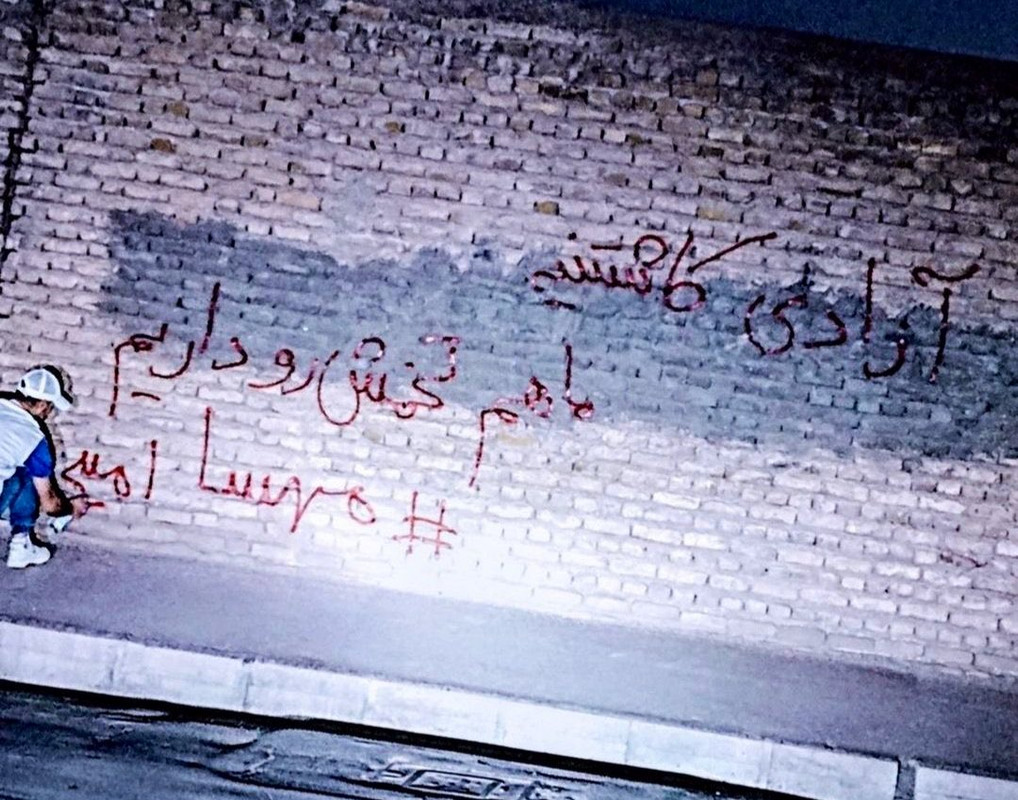 آزادی کاشتنیه
ما هم تخمش رو داریم
#مهسا امینی